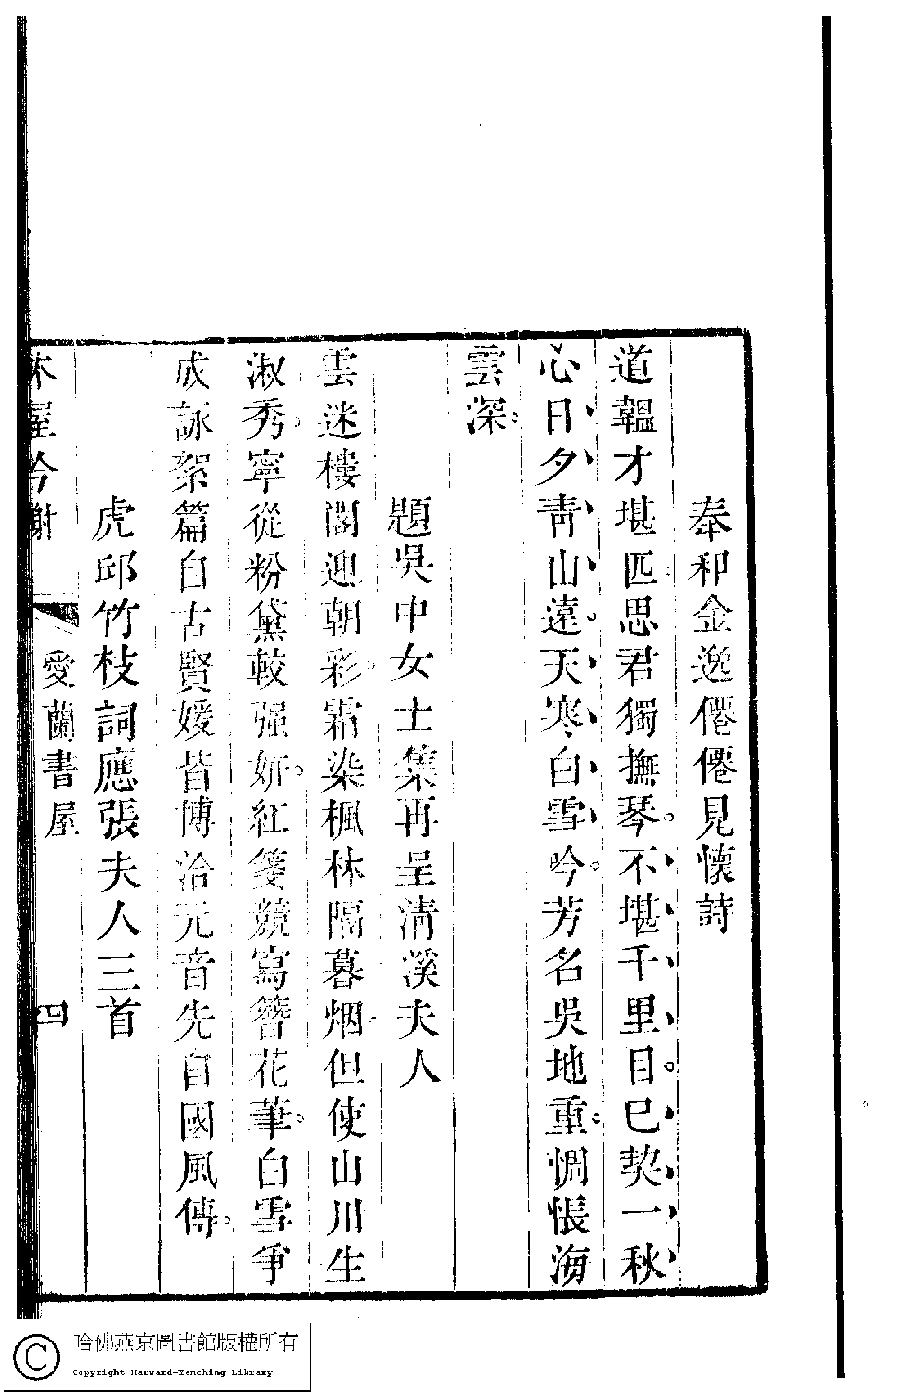 奉和金逸僊僊見懷詩
道韞才堪匹思君獨撫琴不堪千里目已契一秋
心日夕靑山遠天寒白雪吟芳名吳地重惆悵海
雲深
題吳中女士集再呈清溪夫人
雲迷樓閣迎朝彩霜染楓林隔暮烟但使山川生
淑秀寧從粉黛較强妍紅箋競寫簪花華白雪爭
成詠絮篇自古賢媛皆博洽元音先自國風傳
虎邱竹枝詞應張夫人三首
林屋吟榭
愛蘭書屋
四
哈佛燕京圖書館版權所有
Copyright Harvard-Yenching Library